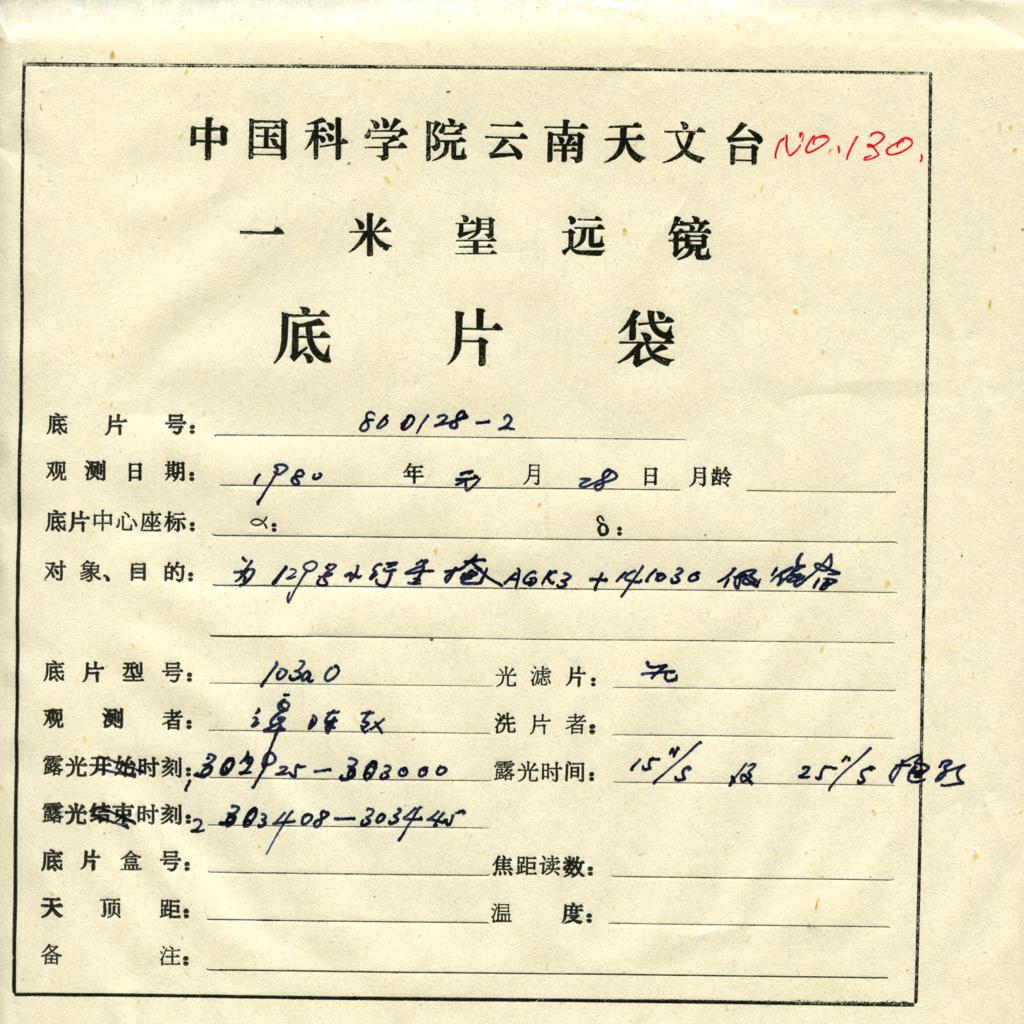 中国科学院云南天文台 NO.130.
一米望远镜
底片袋
底片号: 800128-2
观测日期: 1980 年 元 月 28 日 月龄
底片中心座标: α: δ:
对象、目的: 为129号小行星掩AGK3 +141030
底片型号: 103aO 光滤片: 无
观测者: 洗片者:
露光开始时刻: 1, 302925-303000 露光时间: 15"/5 及 25"/5
露光结束时刻: 2 303408-303445
底片盒号: 焦距读数:
天顶距: 温度:
备注: